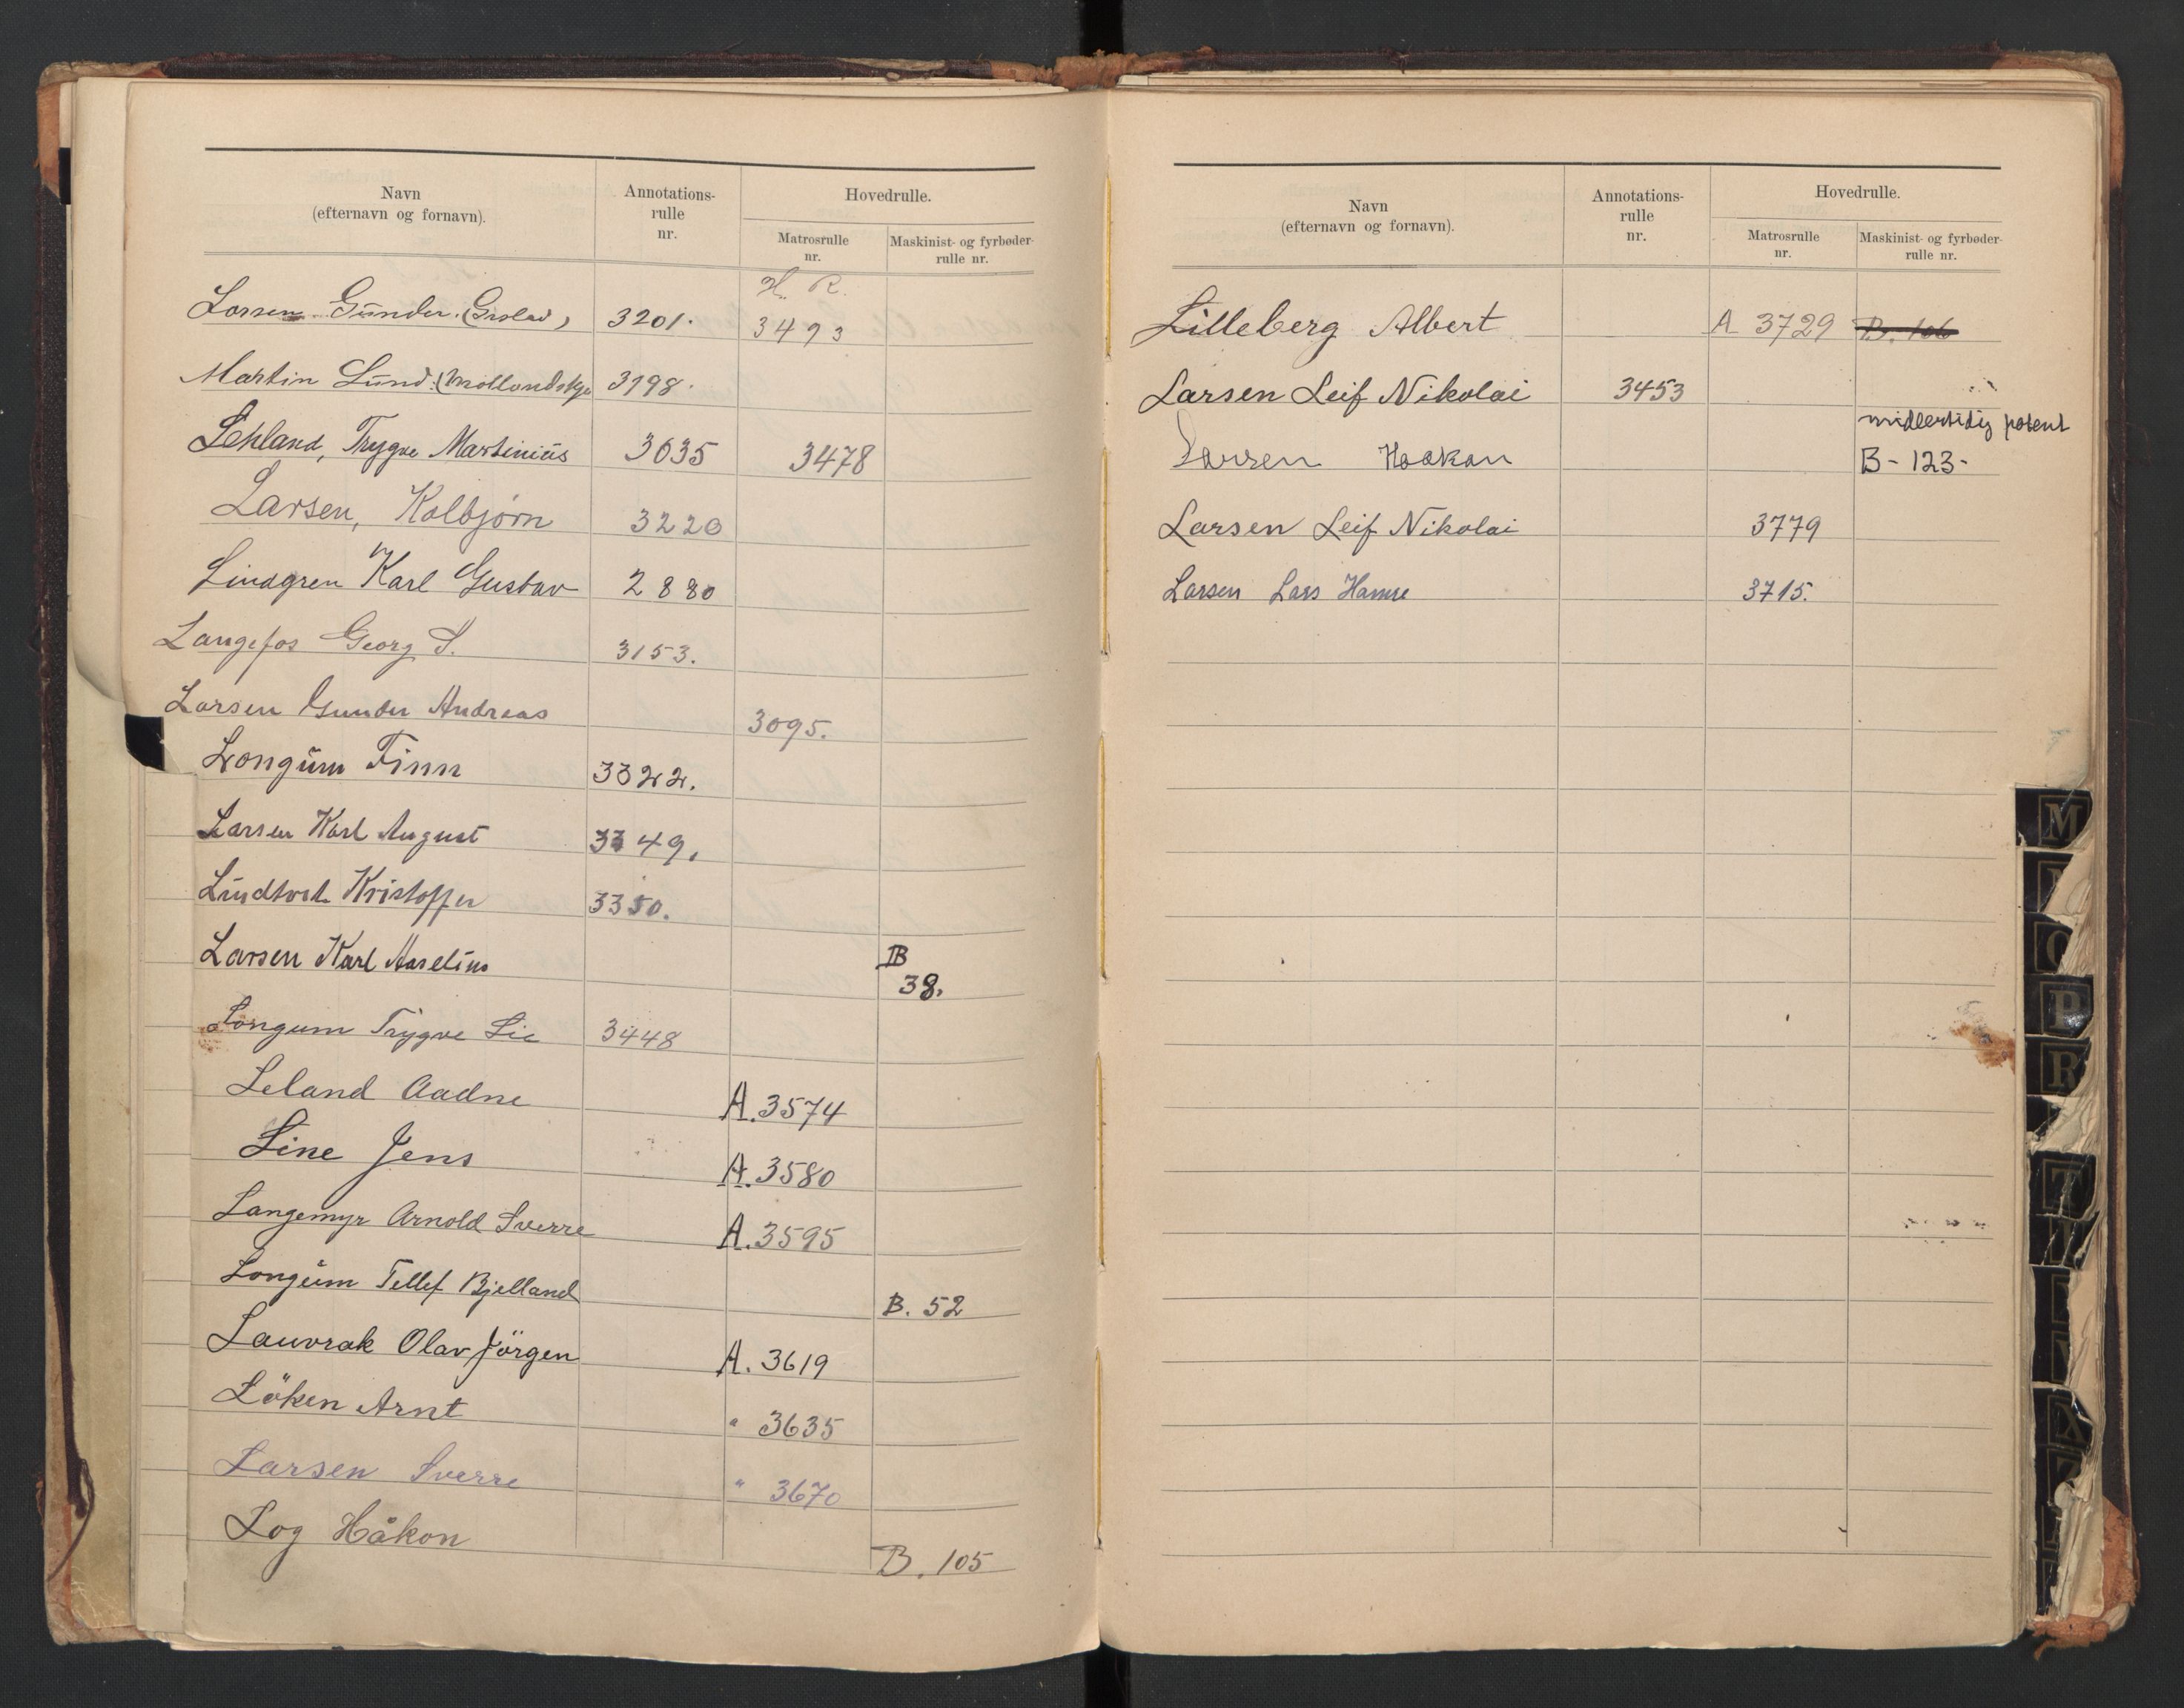 Navn
(efternavn og fornavn).
Annotations-
rulle
nr.
Hovedrulle.
Matrosrulle
nr.
Maskinist- og fyrbøder-
rulle nr.
H. R.
Larsen Gunder. 3201. 3493
Martin Lund. 3198.
Lehland, Trygve Martinius 3635 3478
Larsen, Kolbjørn 3220
Lindgren Karl Gustav 2880
Langefos Georg S. 3153.
Larsen Gunder Andreas 3095.
Longum Finn 3322.
Larsen Karl August 3349.
Kristoffer 3350.
Larsen Karl B
38.
Longum Trygve Lie 3448
Leland Aadne A. 3574
Line Jens A. 3580
Langemyr Arnold Sverre A. 3595
Longum Tellef Bjelland B. 52
Lauvrak Olav Jörgen A. 3619
Löken Arnt " 3635
Larsen Sverre " 3670
Log Håkon B. 105
Navn
(efternavn og fornavn).
Annotations-
rulle
nr.
Hovedrulle.
Matrosrulle
nr.
Maskinist- og fyrbøder-
rulle nr.
Lilleberg Albert A 3729 B. 106
Larsen Leif Nikolai 3453
midlertidig patent
Haakan B - 123 -
Larsen Leif Nikolai 3779
Larsen Lars Hamre 3715.
M
N
O
P
R
T